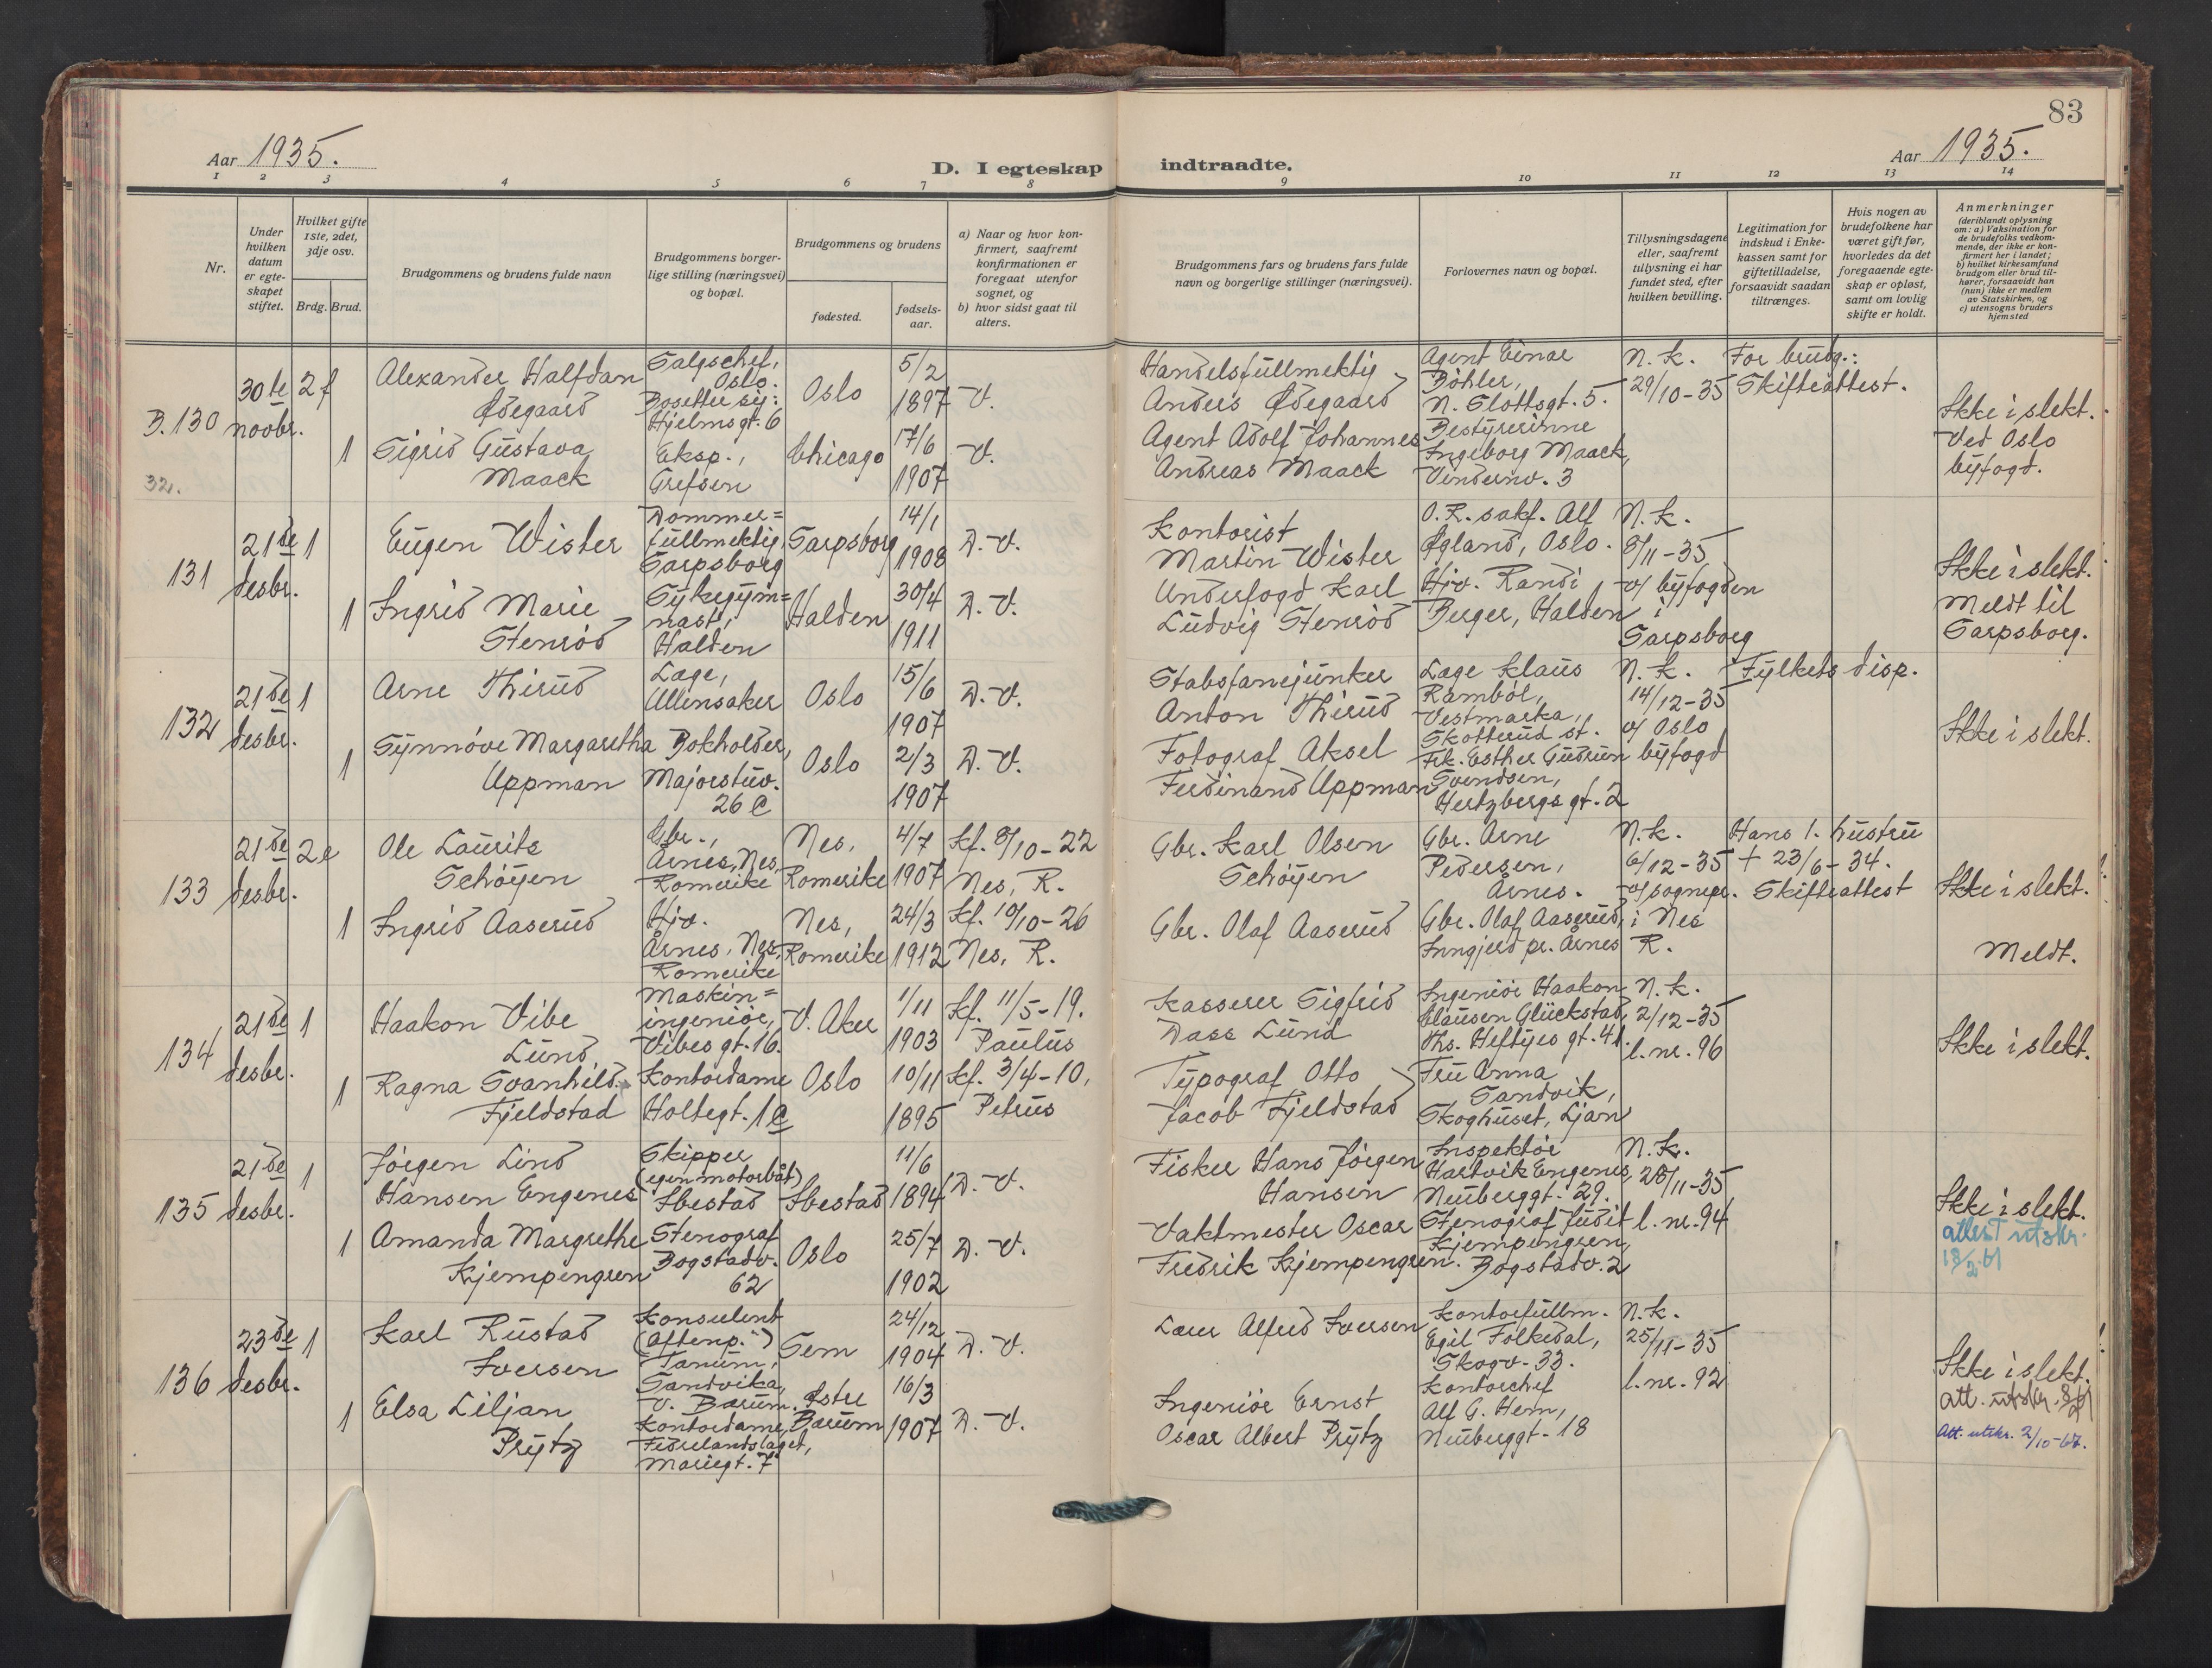 83
Aar 1935.
D. I egteskap indtraadte.
Aar 1935.
1 2 3 4 5 6 7 8 9 10 11 12 13 14
Nr.
Under hvilken datum er egte-skapet stiftet.
Hvilket gifte 1ste, 2det, 3dje osv.
Brdg. Brud.
Brudgommens og brudens fulde navn
Brudgommens borger-lige stilling (næringsvei) og bopæl.
Brudgommens og brudens
fødested.
fødsels-aar.
a) Naar og hvor kon-firmert, saafremt konfirmationen er foregaat utenfor sognet, og
b) hvor sidst gaat til alters.
Brudgommens fars og brudens fars fulde navn og borgerlige stillinger (næringsvei).
Forlovernes navn og bopæl.
Tillysningsdagene eller, saafremt tillysning ei har fundet sted, efter hvilken bevilling.
Legitimation for indskud i Enke-kassen samt for giftetilladelse, forsaavidt saadan tiltrænges.
Hvis nogen av brudefolkene har været gift før, hvorledes da det foregaaende egte-skap er opløst, samt om lovlig skifte er holdt.
Anmerkninger
(deriblandt oplysning om: a) Vaksination for de brudefolks vedkom-mende, der ikke er kon-firmert her i landet;
b) hvilket kirkesamfund brudgom eller brud til-hører, forsaavidt han (hun) ikke er medlem av Statskirken, og
c) utensogns bruders hjemsted
B. 130
32.
30te novbr.
2 f
Alexander Halfdan Ødegaard
Salgschef, Oslo. Bosetter sig: Hjelmsgt. 6
Oslo
5/2 1897
V.
Handelsfullmektig Anders Ødegaard
Agent Einar Böhler, N. Slottsgt. 5.
N. k. 29/10-35
For brudg.: Skifteattest.
Ikke i slekt. Ved Oslo byfogd.
1
Sigrid Gustava Maack
Eksp., Grefsen
Chicago
17/6 1907
V.
Agent Adolf Johannes Andreas Maack
Bestyrerinne Ingeborg Maack, Vindernv. 3
131
21de desbr.
1
Eugen Wister
Dommer=fullmektig, Sarpsborg
Sarpsborg
14/1 1908
D. V.
Kontorist Martin Wister
O. R. sakf. Alf Øgland, Oslo.
N. k. 8/11-35 v/ byfogden i Sarpsborg
Ikke i slekt. Meldt til Sarpsborg.
1
Ingrid Marie Stenröd
Sykegym=nast, Halden
Halden
30/4 1911
D. V.
Underfogd Karl Ludvig Stenröd
Hjv. Randi Berger, Halden
132
21de desbr.
1
Arne Thirud
Læge, Ullensaker
Oslo
15/6 1907
D. V.
Stabsfanejunker Anton Thirud
Læge Klaus Ramböl, Vestmarka, Skotterud st.
N. k. 14/12-35 v/ Oslo byfogd
Fylkets disp.
Ikke i slekt.
1
Synnöve Margaretha Uppman
Bokholder, Majorstuv. 26 C
Oslo
2/3 1907
D. V.
Fotograf Aksel Ferdinand Uppman
Frk. Esther Gudrun Svendsen, Hertzbergs gt. 2
133
21de desbr.
2 e
Ole Laurits Schöyen
Gbr., Årnes, Nes, Romerike
Nes, Romerike
4/7 1907
Kf. 8/10-22 Nes, R.
Gbr. Karl Olsen Schöyen
Gbr. Arne Pedersen, Årnes.
N. k. 6/12-35 v/ sognepr. i Nes R.
Hans 1. hustru † 23/6-34. Skifteattest
Ikke i slekt.
Meldt.
1
Ingrid Aaserud
Hjv. Årnes, Nes, Romerike
Nes, Romerike
24/3 1912
Kf. 10/10-26 Nes, R.
Gbr. Olaf Aaserud
Gbr. Olaf Aaserud, Inngjerd pr. Årnes
134
21de desbr.
1
Haakon Vibe Lund
Maskin=ingeniör, Vibes gt. 16.
V. Aker
1/11 1903
Kf. 11/5-19. Paulus
Kasserer Sigfrid Dass Lund
Ingeniör Haakon Clausen Glückstad, Ths. Heftyes gt. 41.
N. k. 2/12-35 l. nr. 96
Ikke i slekt.
1
Ragna Svanhild Fjeldstad
Kontordame Holtegt. 1 C
Oslo
10/11 1895
Kf. 3/4-10, Petrus
Typograf Otto Jacob Fjeldstad
Fru Anna Sandvik, Skoghuset, Ljan
135
21de desbr.
1
Jörgen Lind Hansen Engenes
Skipper (egen motorbåt) Ibestad
Ibestad
11/6 1894
D. V.
Fisker Hans Jörgen Hansen
Inspektör Hartvik Engenes, Neuberggt. 29.
N. k. 28/11-35 l. nr. 94
Ikke i slekt.
attest utskr. 18/2.61
1
Amanda Margrethe Kjempengren
Stenograf Bogstadv. 62
Oslo
25/7 1902
D. V.
Vaktmester Oscar Fredrik Kjempengren.
Stenograf Judit Kjempengren, Bogstadv. 2
136
23de desbr.
1
Karl Rustad Iversen
Konsulent (Aftenp.") Tanum, Sandvika, V. Bærum.
Sem
24/12 1904
D. V.
Lærer Alfred Iversen
Kontorfullm. Egil Folkedal, Skogv. 33.
N. k. 25/11-35 l. nr. 92
Ikke i slekt.
att. utskr.
Att. utskr. 2/10-67.
1
Elsa Liljan Prytz
Kontordame, Fedrelandslaget, Mariegt. 7
Østre Bærum
16/3 1907
D. V.
Ingeniör Ernst Oscar Albert Prytz
Kontorchef Alf G. Hem, Neuberggt. 18